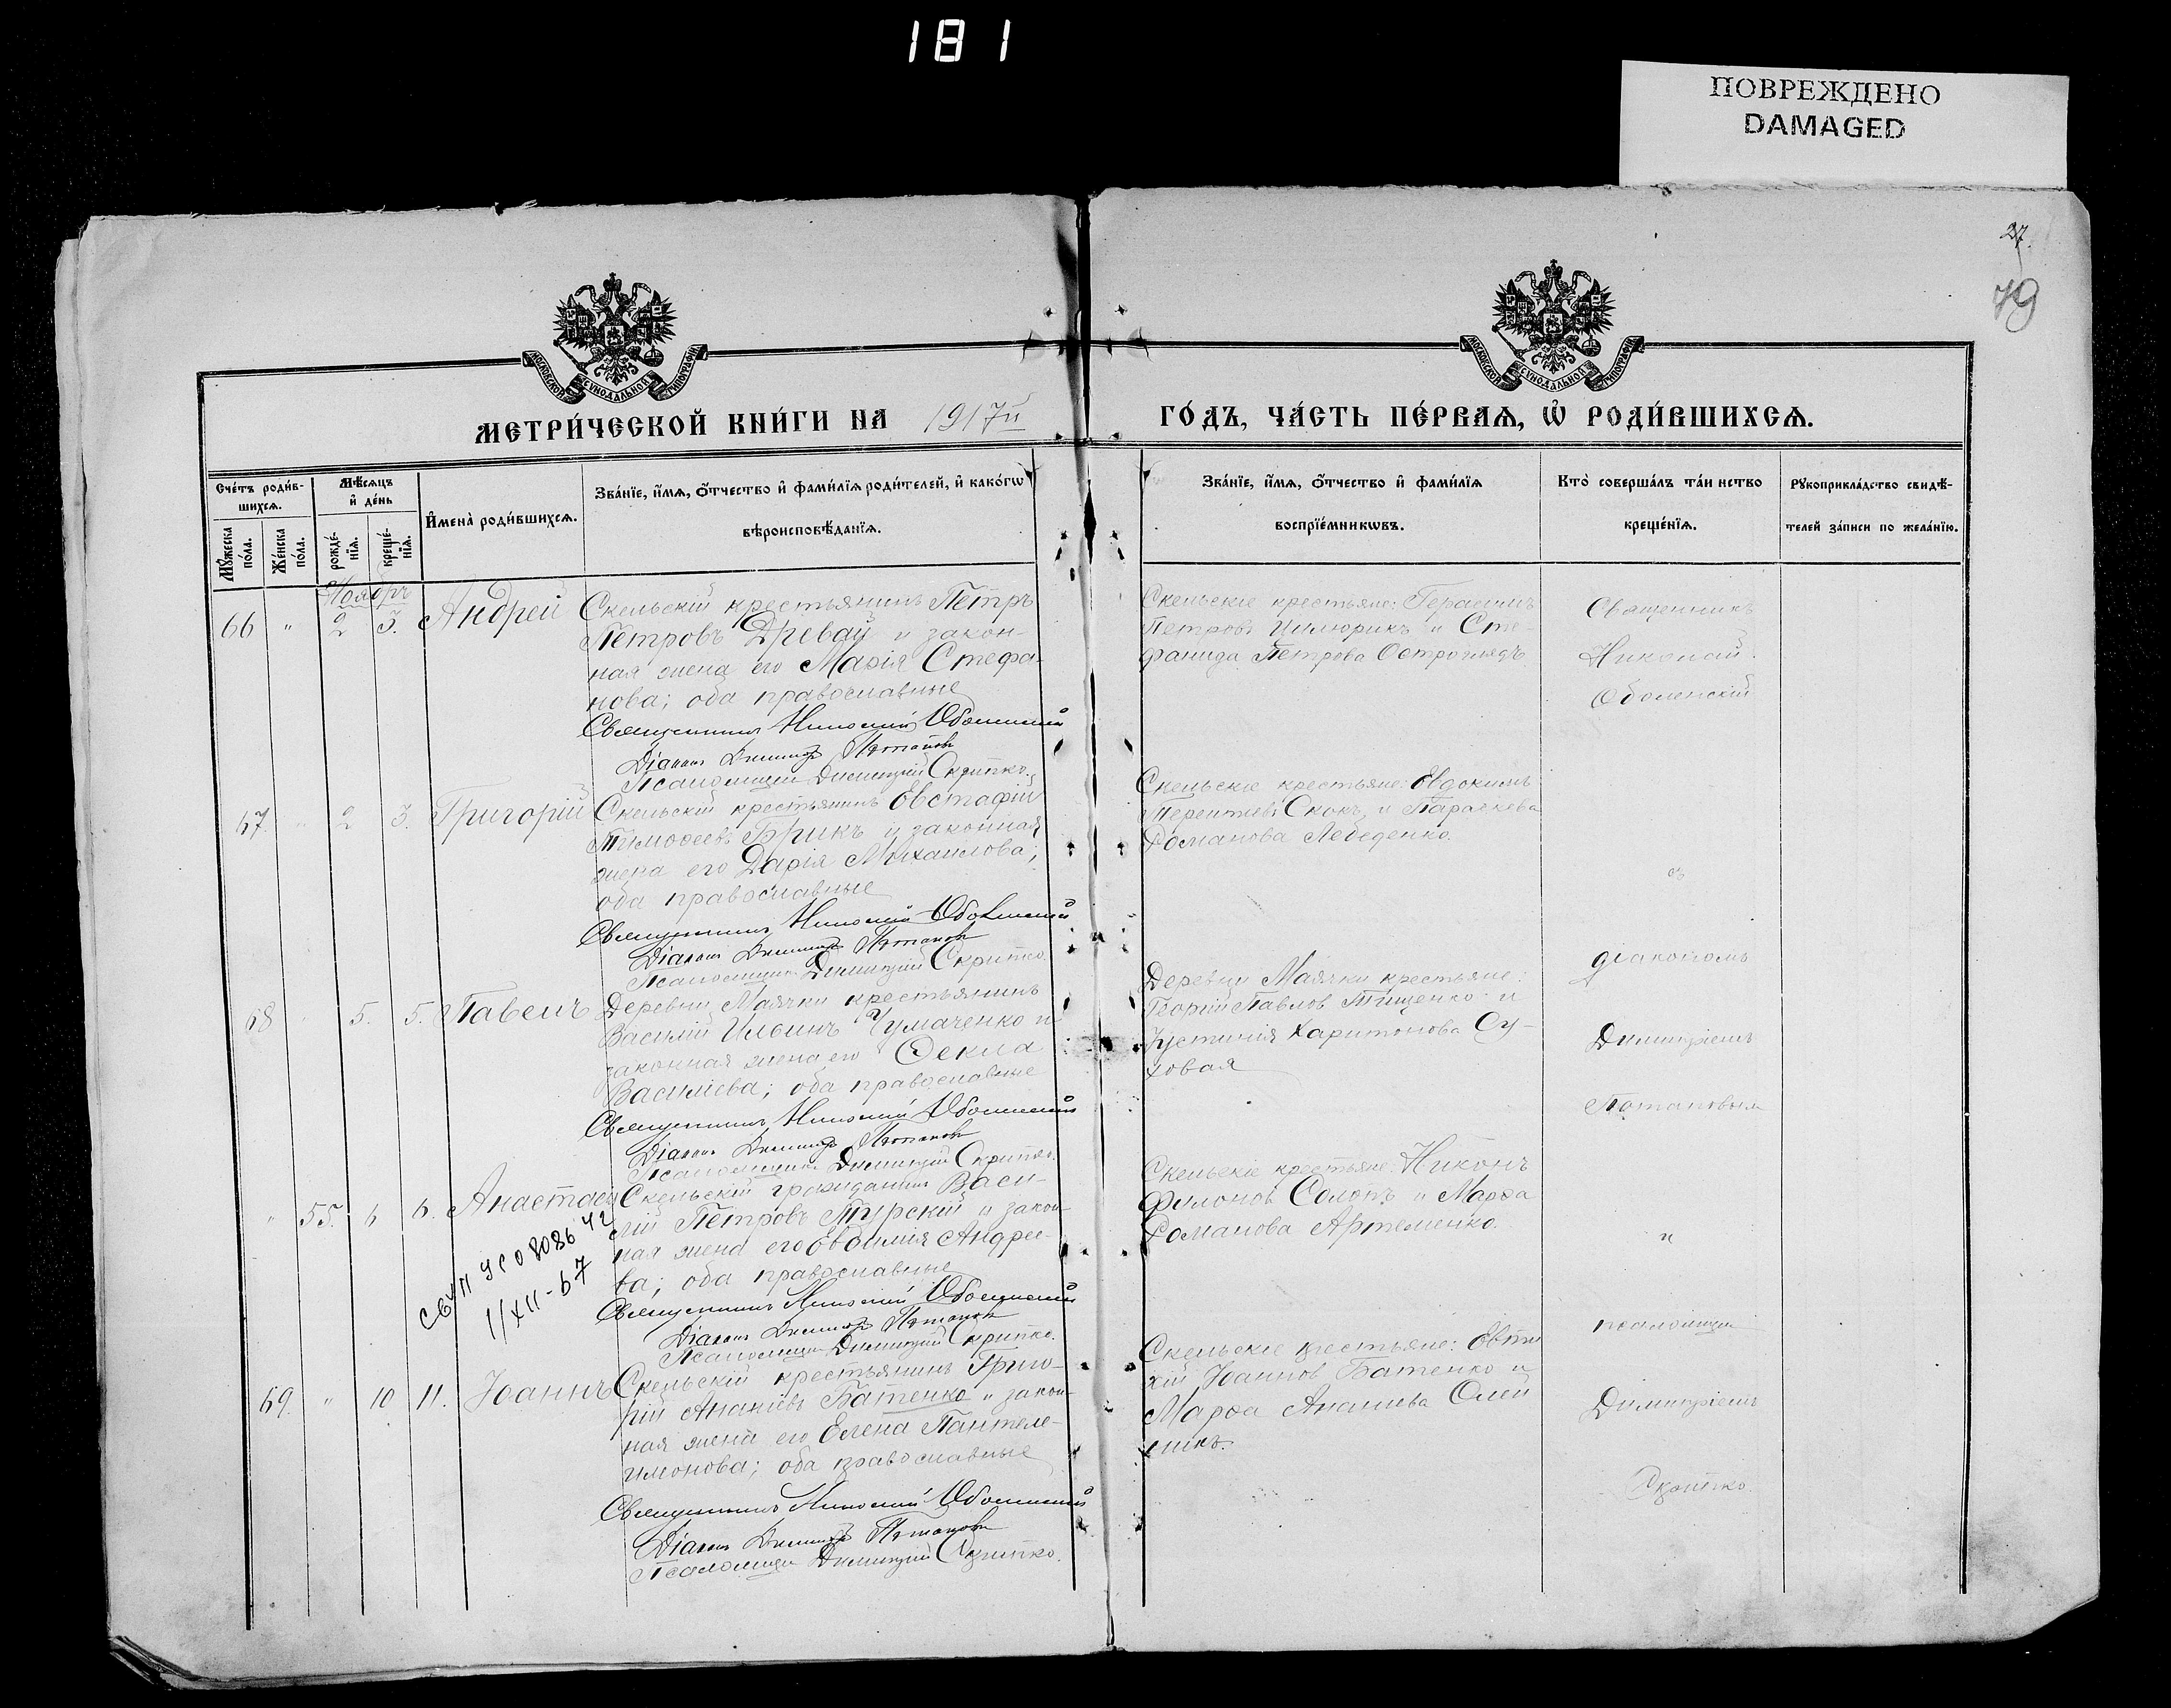 181
ПОВРЕЖДЕНО
DAMAGED
27.
79
МОСКОВСКОЙ СУНОДАЛЬНОЙ ТИПОГРАФІИ
МОСКОВСКОЙ СУНОДАЛЬНОЙ ТИПОГРАФІИ
МЕТРИ́ЧЕСКОЙ КНИ́ГИ НА 1917й
ГО́ДЪ, ЧА́СТЬ ПЕ́РВАѦ, Ѡ҆ РОДИ́ВШИХСѦ.
Сче́тъ роди́в-
шихсѧ.
Мѣ́сѧцъ
и҆ де́нь
Мꙋ́жеска по́ла.
Же́нска по́ла.
рожде́-
нїѧ.
креще́-
нїѧ.
И҆мена̀ роди́вшихсѧ.
Зва́нїе, и҆́мѧ, ѻ҆́тчество и҆ фами́лїѧ роди́телей, и҆ како́гѡ
вѣроисповѣ́данїѧ.
Зва́нїе, и҆́мѧ, ѻ҆́тчество и҆ фами́лїѧ
воспрїе́мникѡвъ.
Кто̀ соверша́лъ та́инство
креще́нїѧ.
Рꙋкоприкла́дство свидѣ́-
телей за́писи по жела́нїю.
Ноябрь
66 " 2 3. Андрей
Скельскій крестьянинъ Петръ
Петровъ Древай и закон-
ная жена его Марія Стефа-
нова; оба православные
Священникъ Николай Оболенскій
Діаконъ Димитрій Потаповъ
Псаломщикъ Димитрій Скрипко.
Скельскіе крестьяне: Герасимъ
Петровъ Цилюрикъ и Сте-
фанида Петрова Остроглядъ
Священникъ
Николай
Оболенскій
67. " 2 3. Григорій
Скельскій крестьянинъ Евстафій
Тимофеевъ Брикъ и законная
жена его Дарія Михаилова;
оба православные
Священникъ Николай Оболенскій
Діаконъ Димитрій Потаповъ
Псаломщикъ Димитрій Скрипко.
Скельскіе крестьяне: Евдокимъ
Терентіевъ Скокъ и Параскева
Романова Лебеденко.
съ
діакономъ
68 5. 5. Павелъ
Деревни Маячки крестьянинъ
Василій Ильинъ Чумаченко и
законная жена его Ѳекла
Василіева; оба православные
Священникъ Николай Оболенскій
Діаконъ Димитрій Потаповъ
Псаломщикъ Димитрій Скрипко.
Деревни Маячки крестьяне:
Георгій Павлов Тищенко и
Іустинія Харитонова Су-
ховая
Димитріемъ
Потаповымъ
" 55. 6 6. Анастасія
Скельскій гражданин Васи-
лій Петровъ Турскій и закон-
ная жена его Евдокия Андрее-
ва; оба православные
Священникъ Николай Оболенскій
Діаконъ Димитрій Потаповъ
Псаломщикъ Димитрій Скрипко.
Скельскіе крестьяне: Никонъ
Филонов Солопъ и Марфа
Романова Артеменко.
и
псаломщик
69. " 10 11. Іоаннъ
Скельскій крестьянинъ Григо-
рій Ананіевъ Батенко и закон-
ная жена его Елена Пантеле-
имонова; оба православные
Священникъ Николай Оболенскій
Діаконъ Димитрій Потаповъ
Псаломщикъ Димитрій Скрипко.
Скельскіе крестьяне: Евти-
хій Іоаннов Батенко и
Марфа Ананіева Олей
никъ.
Димитріемъ
Скрипко.